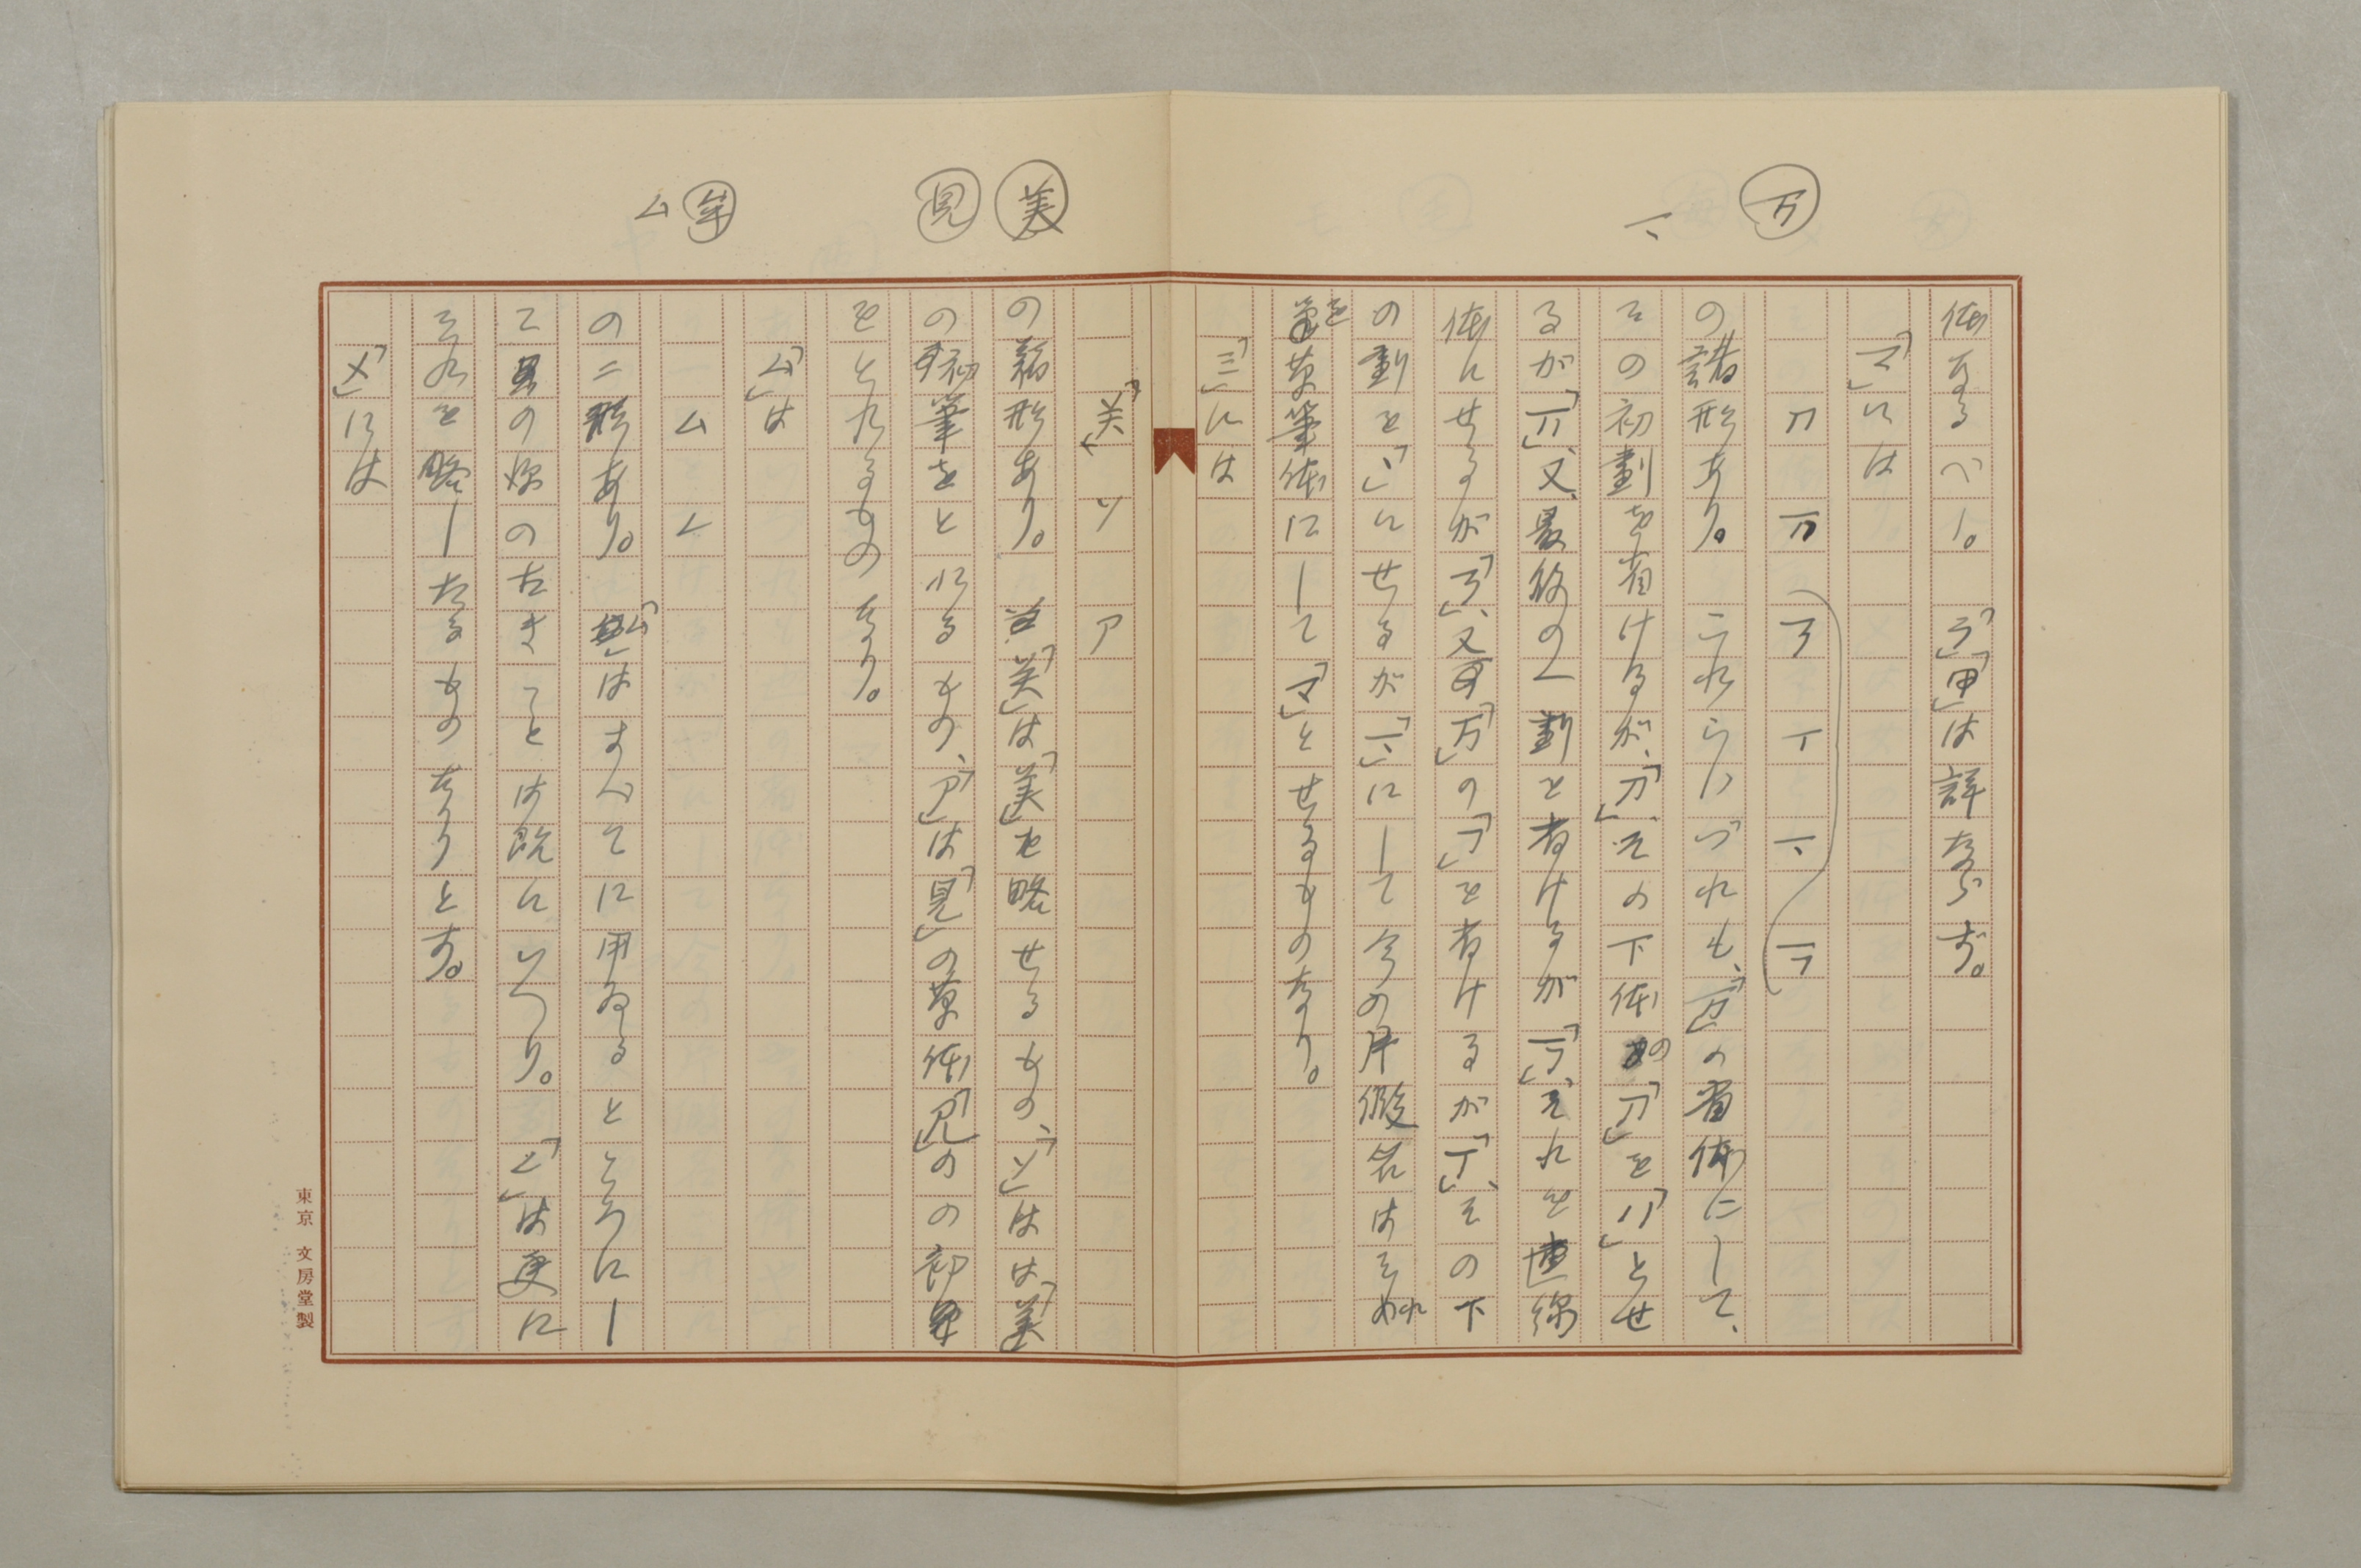 万
体なるべし。「ヲ」「甲」は詳ならず。
「マ」には
の諸形あり。これらいづれも、「万」の省体にして、
その初劃を省けるが、「刀」、その下体の「刀」を「リ」とせ
るが「丌」、又、最後の一劃を省けるが「丆」、それを連綿
体にせるが「ろ」、又「万」の「フ」を省けるが「丅」、その下
の劃を「丶」にせるが「一、」にして今の片假名はそれ
を草筆体にして「マ」とせるものなり。
「三」には
美
見
「羊」 ソ ア
の諸形あり。「羊」は「美」を略せるもの、「ソ」は「美」
の初筆をとれるもの、「ア」は「見」の草体「見」のの部
をとれるものなり。
牟
ム
「ム」は
ム レ
の二形あり。「ム」はすべてに用ゐるところにし
て異の嫌のなきことは既にいへり。「レ」は更に
それを略したるものなりとす。
「メ」には
東京 文房堂製